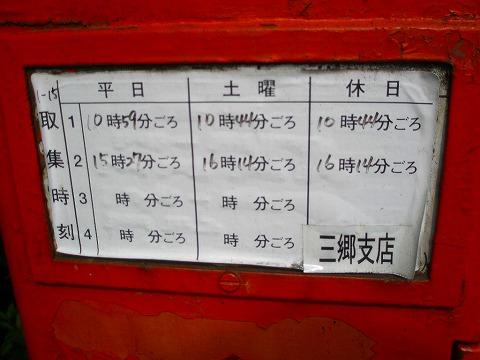 1-15 平日 土曜 休日
取集時刻
1 10時59分ごろ 10時44分ごろ 10時44分ごろ
2 15時27分ごろ 16時14分ごろ 16時14分ごろ
3 時 分ごろ 時 分ごろ
4 時 分ごろ 時 分ごろ
三郷支店